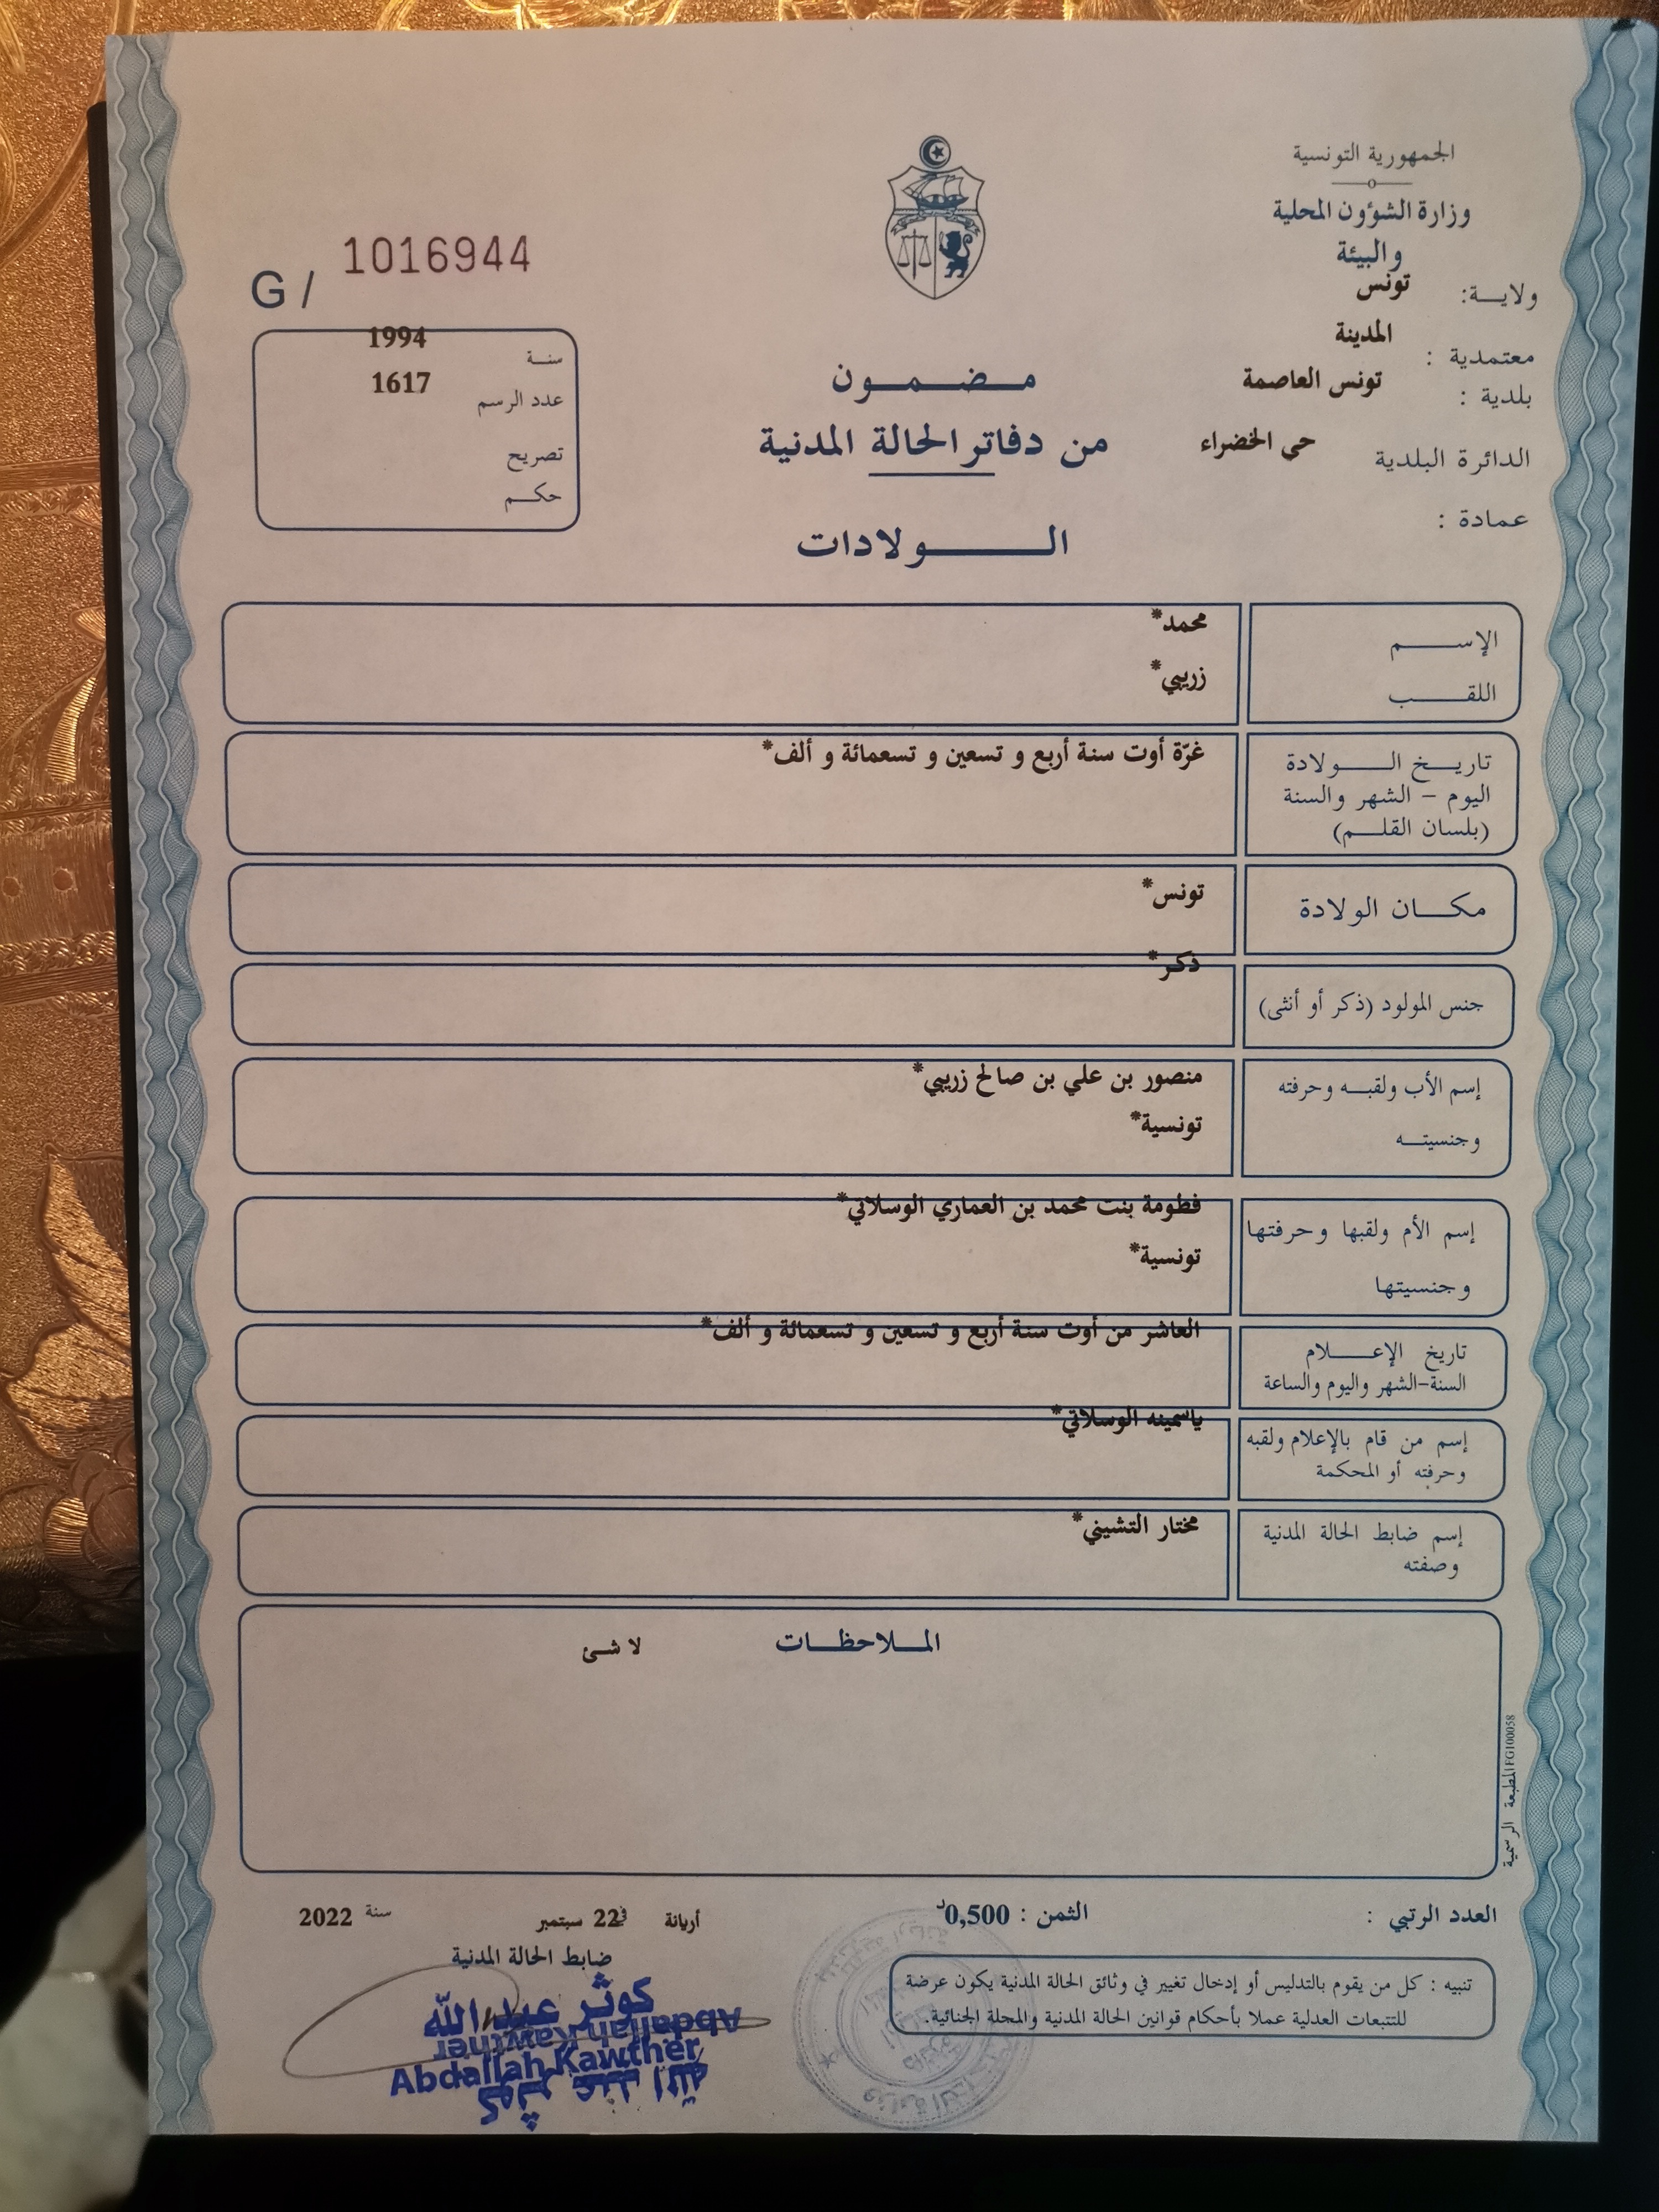 الجمهورية التونسية
وزارة الشؤون المحلية
والبيئة
ولاية: تونس
معتمدية : المدينة
بلدية : تونس العاصمة
الدائرة البلدية حي الخضراء
عمادة :
G / 1016944
سنة 1994
عدد الرسم 1617
تصريح
حكم
مضمون
من دفاتر الحالة المدنية
الولادات
الإسم محمد*
اللقب زريبي*
تاريخ الولادة غرّة أوت سنة أربع و تسعين و تسعمائة و ألف*
اليوم - الشهر والسنة
(بلسان القلم)
مكان الولادة تونس*
جنس المولود (ذكر أو أنثى) ذكر*
إسم الأب ولقبه وحرفته منصور بن علي بن صالح زريبي*
وجنسيته تونسية*
إسم الأم ولقبها وحرفتها فطومة بنت محمد بن العماري الوسلاتي*
وجنسيتها تونسية*
تاريخ الإعلام العاشر من أوت سنة أربع و تسعين و تسعمائة و ألف*
السنة-الشهر واليوم والساعة
إسم من قام بالإعلام ولقبه ياسمينه الوسلاتي*
وحرفته أو المحكمة
إسم ضابط الحالة المدنية مختار التشيني*
وصفته
الملاحظات لا شئ
المطبعة الرسمية FG100058
العدد الرتبي :
الثمن : 0,500د
أريانة في 22 سبتمبر سنة 2022
ضابط الحالة المدنية
تنبيه : كل من يقوم بالتدليس أو إدخال تغيير في وثائق الحالة المدنية يكون عرضة
للتتبعات العدلية عملا بأحكام قوانين الحالة المدنية والمجلة الجنائية.
كوثر عبد الله
Abdallah Kawther
Abdallah Kawther
كوثر عبد الله